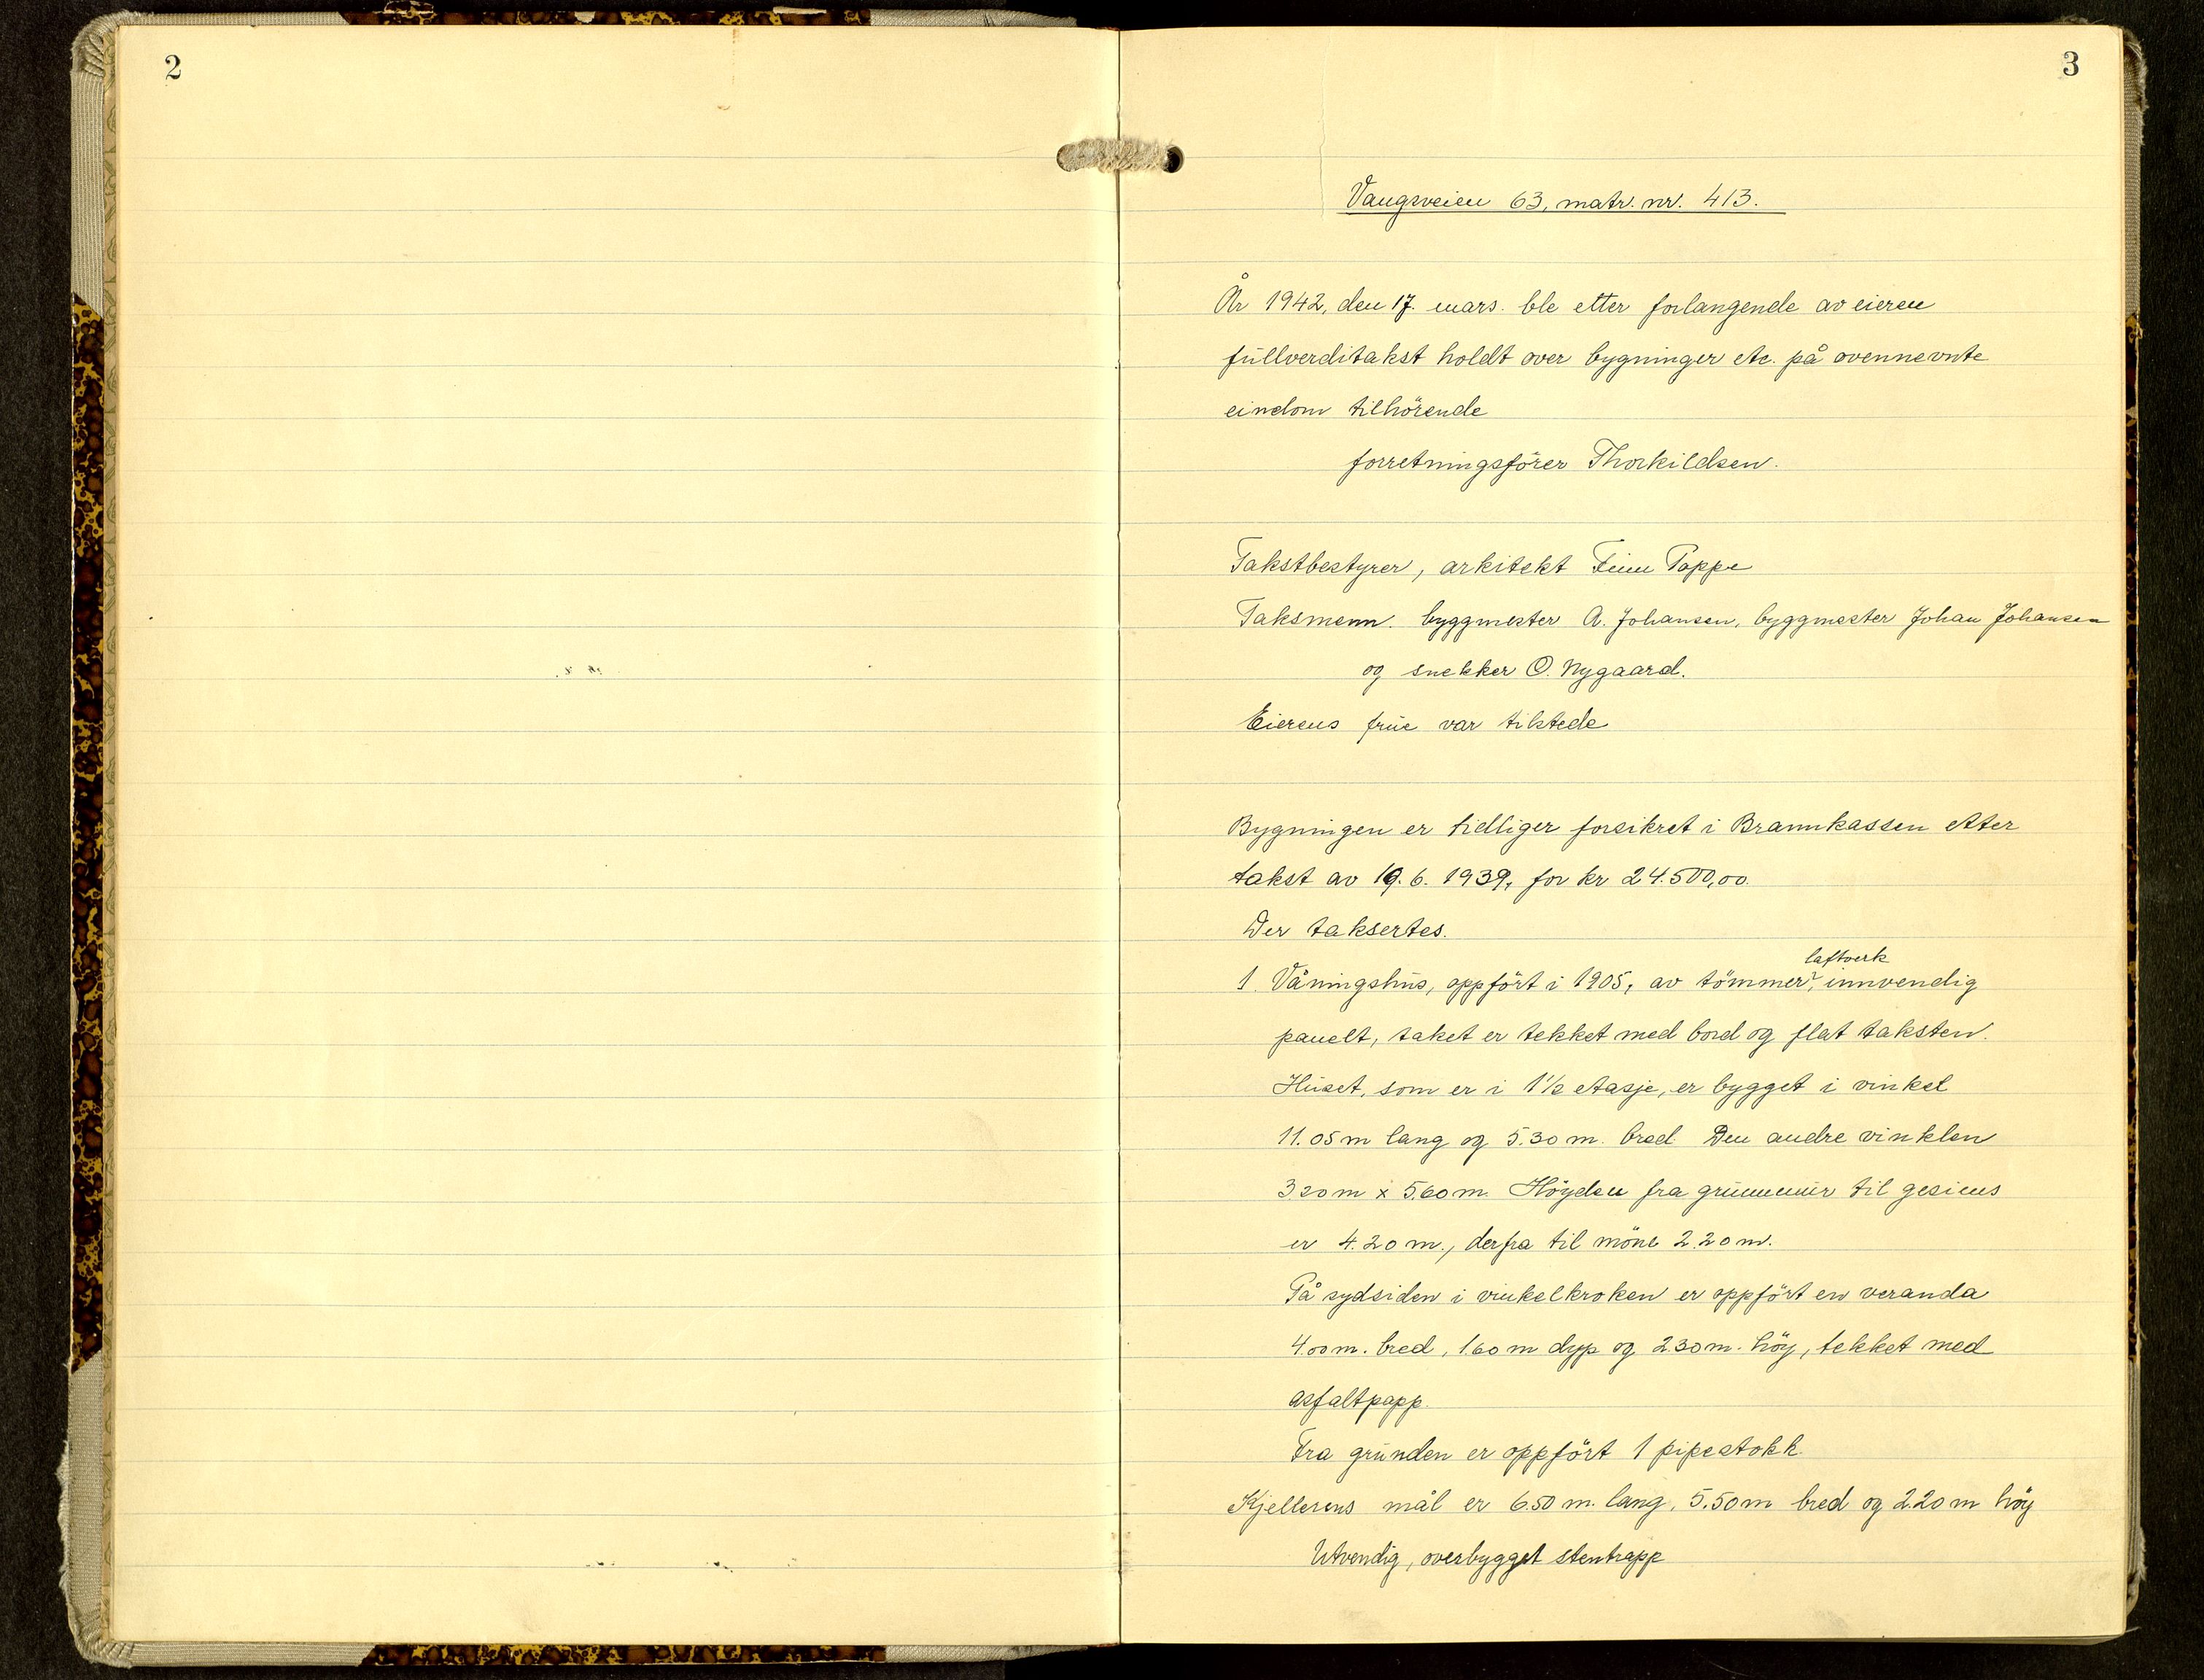 2
3
Vangsveien 63, matr. nr. 413.
År 1942, den 17. mars. ble etter forlangende av eieren
fullverditakst holdt over bygninger etc. på ovennevnte
eindom tilhörende
forretningsförer Thorkildsen.
Takstbestyrer, arkitekt Finn Pappe
Taksmenn. byggmester A. Johansen, byggmester Johan Johansen
og snekker O. Nygaard.
Eierens frue var tilstede
Bygningen er tidliger forsikret i Brannkassen etter
takst av 19. 6. 1939, for kr 24.500,00.
Der taksertes.
laftverk
1. Våningshus, oppfört i 1905, av tömmer, innvendig
panelt, taket er tekket med bord og flat taksten.
Huset, som er i 1½ etasje, er bygget i vinkel
11.05 m lang og 5.30 m. bred. Den andre vinklen
3.20 m x 5.60 m. Höyden fra grunnmur til gesims
er 4.20 m., derfra til möne 2.20 m.
På sydsiden i vinkelkroken er oppfört en veranda
4.00 m. bred, 1.60 m dyp og 2.30 m. höy, tekket med
asfaltpapp.
Fra grunden er oppfört 1 pipestokk.
Kjellerens mål er 6.50 m. lang, 5.50 m bred og 2.20 m höy
Utvendig, overbygget stentrapp